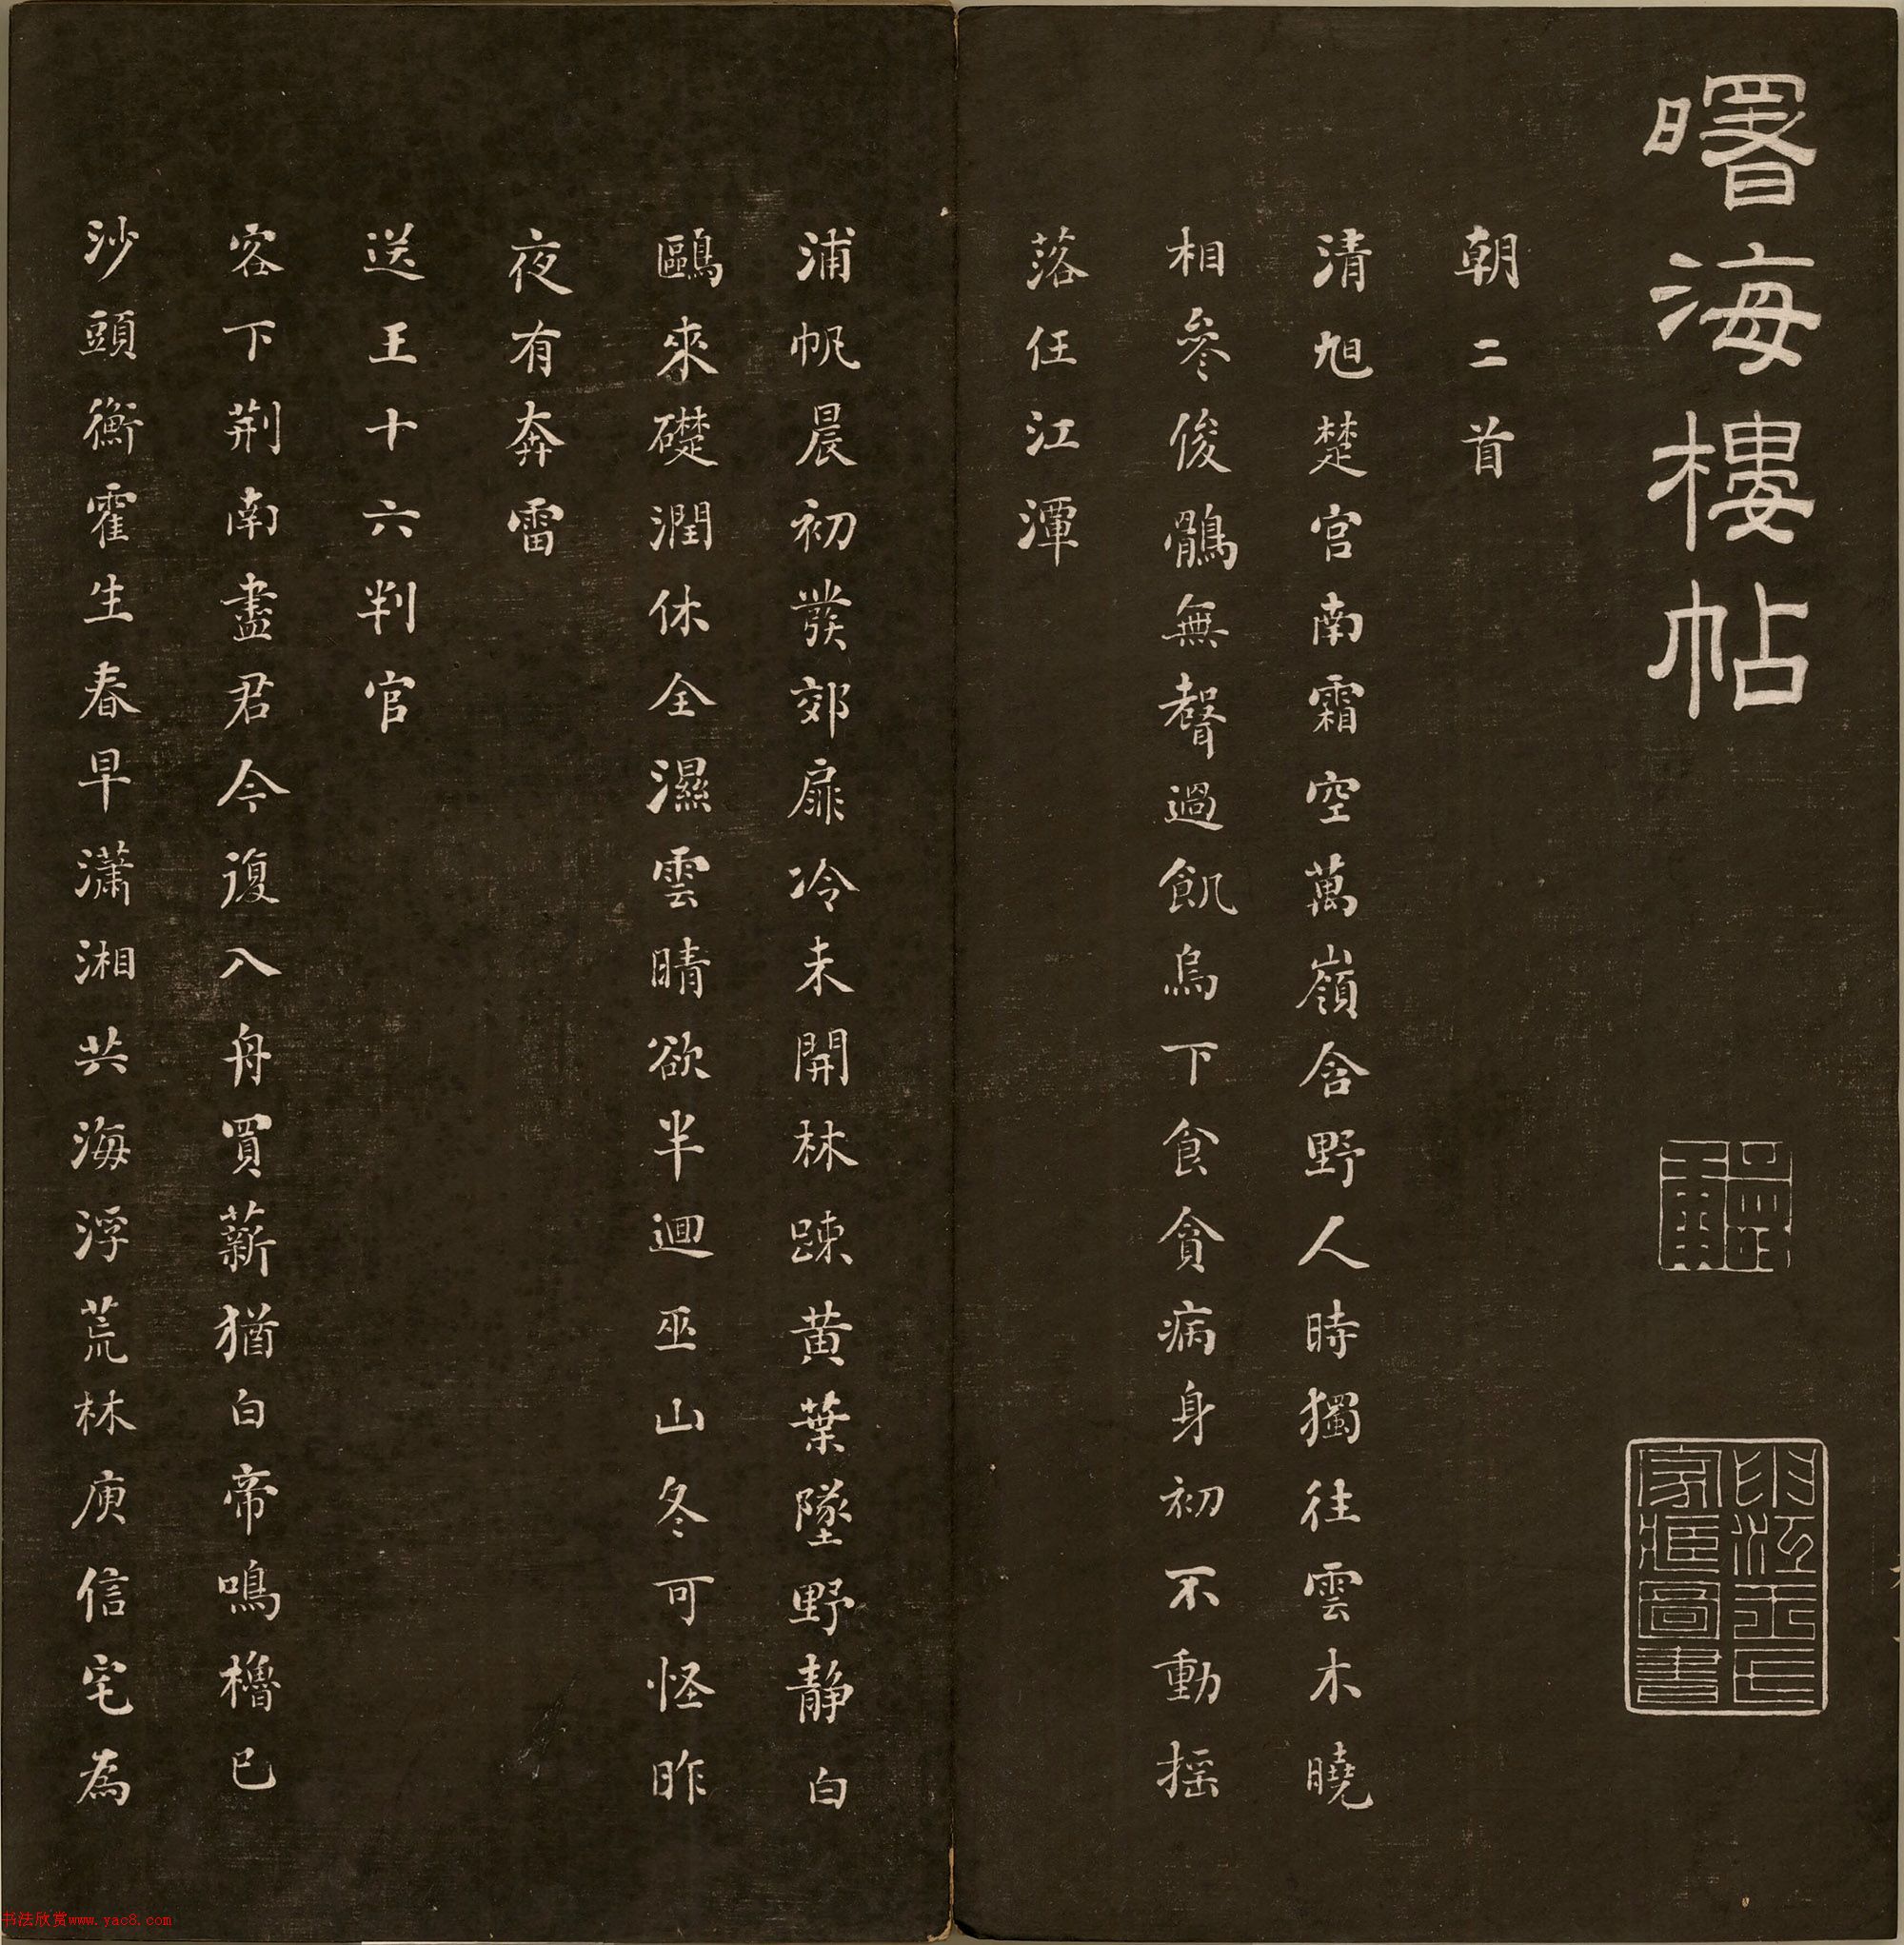 曙海樓帖
朝二首
清旭楚宮南霜空萬嶺含野人時獨往雲木曉
相參俊鶻無聲過飢烏下食貪病身初不動搖
落任江潭
浦帆晨初發郊扉冷未開林踈黃葉墜野靜白
鷗來礎潤休全濕雲晴欲半迴巫山冬可怪昨
夜有奔雷
送王十六判官
客下荆南盡君今復入舟買薪猶白帝鳴櫓已
沙頭衡霍生春早瀟湘共海浮荒林庾信宅為
書法欣赏www.yac8.com